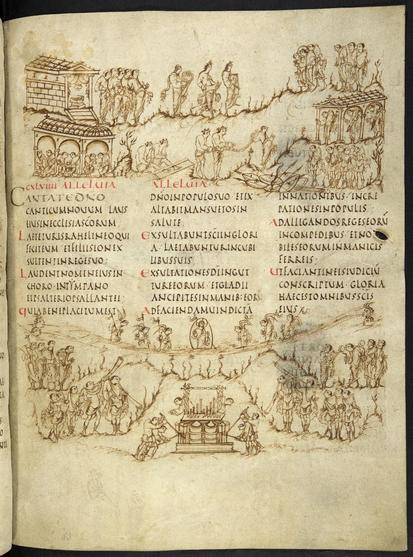 CXLVIIII ALLELUIA
CANTATE DNO
CANTICUM NOUUM LAUS
EIUS IN ECCLESIA SCORUM
LAETETUR ISRAHEL IN EO QUI
FECIT EUM ET FILII SION EX
SULTENT IN REGE SUO
LAUDENT NOMEN EIUS IN
CHORO IN TYMPANO
ET PSALTERIO PSALLANT EI
QUIA BENEPLACITUM EST
ALLELUIA
DNO IN POPULO SUO ET EX
ALTABIT MANSUETOS IN
SALUTE
EXSULTABUNT SCI IN GLORI
A LAETABUNTUR IN CUBI
LIBUS SUIS
EXSULTATIONES DI IN GUT
TURE EORUM ET GLADII
ANCIPITES IN MANIB EORU
AD FACIENDAM UINDICTA
IN NATIONIBUS INCRE
PATIONES IN POPULIS
AD ALLIGANDOS REGES EORU
IN COMPEDIBUS ET NO
BILES EORUM IN MANICIS
FERREIS
UT FACIANT IN EIS IUDICIU
CONSCRIPTUM GLORIA
HAEC EST OMNIBUS SCIS
EIUS